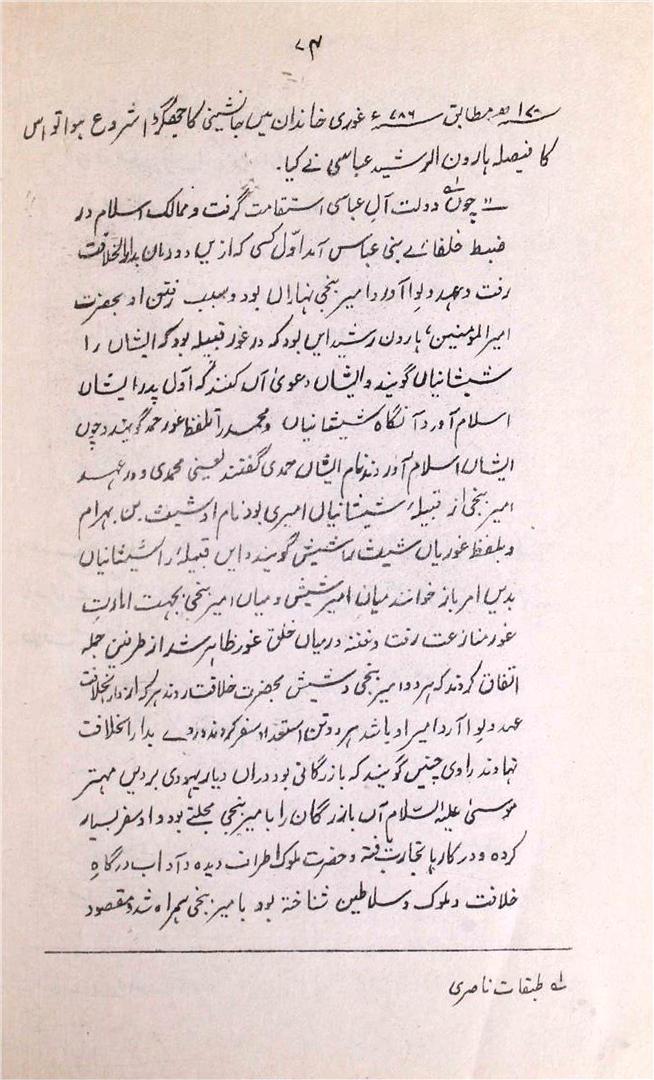 ۷۴
۱۷۰ھ مطابق ۷۸۶ء غوری خاندان میں جانشینی کا جھگڑا شروع ہوا تو اس
کا فیصلہ ہارون الرشید عباسی نے کیا۔
"چوں دولت آل عباسی استقامت گرفت و ممالک اسلام در
ضبط خلفائے بنی عباس آمد اوّل کسی کہ ازیں دودمان بدارالخلافت
رفت و عہد و لوا آورد امیر بنجی نہاراں بود و سبب رفتن او بحضرت
امیر المومنین ہارون رشید ایں بود کہ در غور قبیلہ بود کہ ایشاں را
شیشانیاں گویند و ایشاں دعویٰ آں کنند کہ اول پدر ایشاں
اسلام آورد آنگاہ شیشانیاں و محمد را بلفظ غور حمد گویند و چوں
ایشاں اسلام آوردند نام ایشاں حمدی گفتند یعنی محمدی و در عہد
امیر بنجی از قبیلۂ شیشانیاں امیری بود نام او شیث بن بہرام
و بلفظ غوریاں شیث را شیش گویند و ایں قبیلہ را شیشانیاں
بدیں امر باز خوانند میان امیر شیش و میاں امیر بنجی بجہت امارتِ
غور منازعت رفت و فتنہ درمیاں خلق غور ظاہر شد از طرفین جملہ
اتفاق کردند کہ ہر دو امیر بنجی و شیش بحضرت خلافت روند ہر کہ از دارالخلافت
عہد و لوا آرد امیر او باشد ہر دو تن استعداد سفر کردند و روے بدارالخلافت
نہادند راوی چنیں گویند کہ بازرگانی بود دراں دیار یہودی بر دیں مہتر
موسیٰ علیہ السّلام آں بازرگان را با میر بنجی محبتے بود و او سفر بسیار
کردہ و در کارہا تجارت یافتہ و حضرت ملوک اطراف دیدہ و آداب درگاہِ
خلافت و ملوک و سلاطین شناختہ بود با میر بنجی ہمراہ شد و مقصود
طبقات ناصری